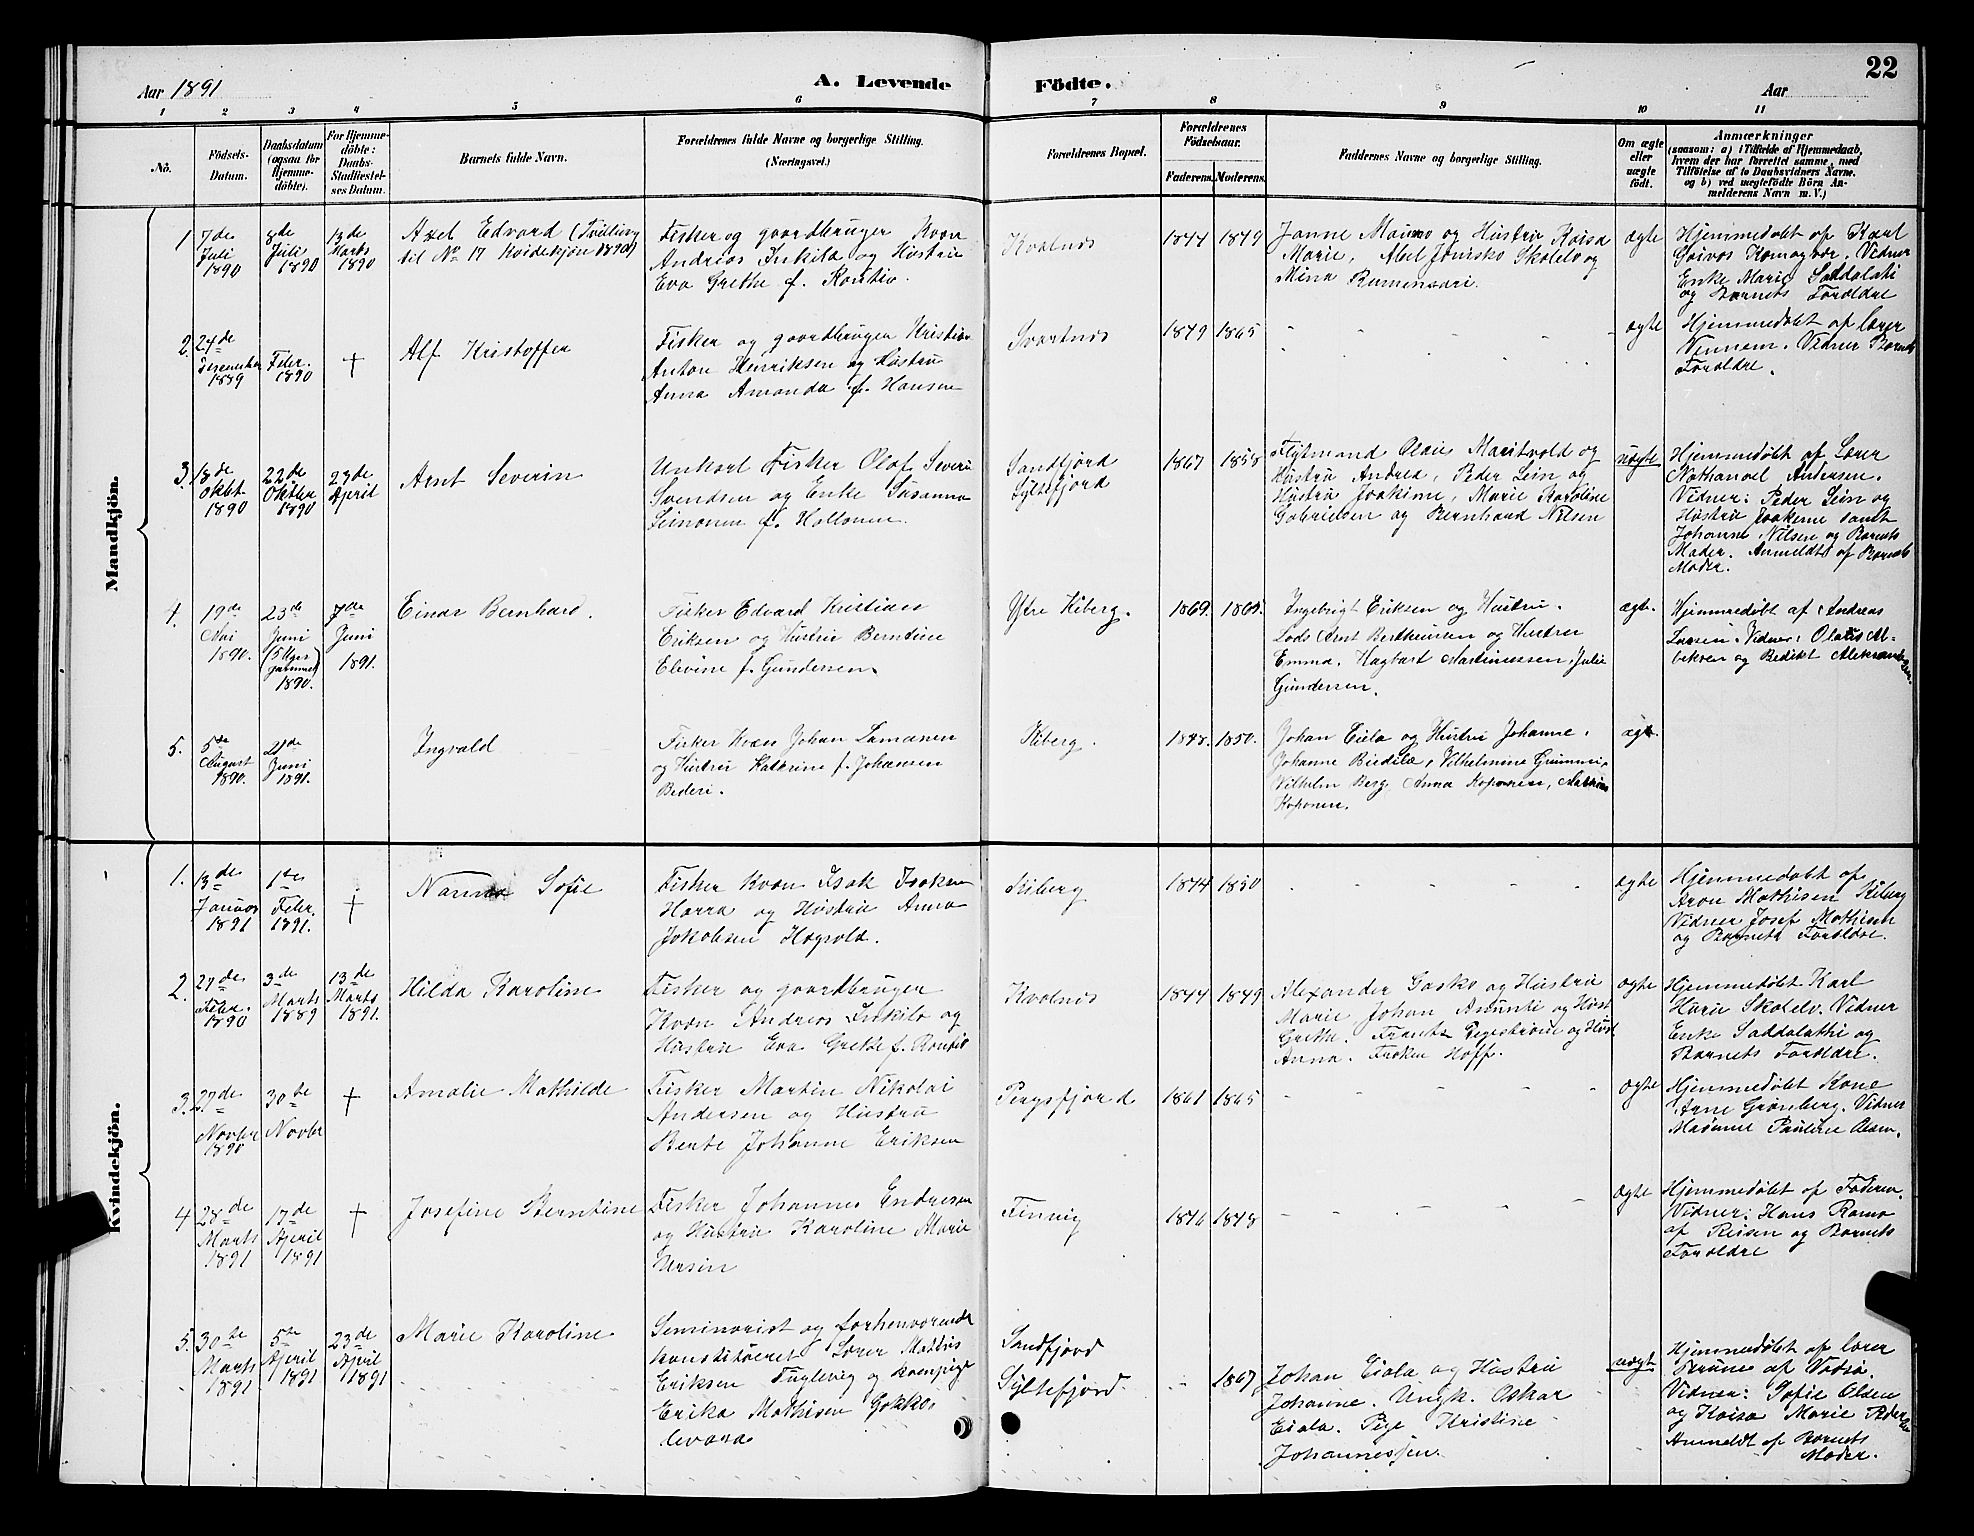 22
Aar 1891
A. Levende Födte.
Aar
1 2 3 4 5 6 7 8 9 10 11
No.
Födsels-
Datum.
Daabsdatum
(ogsaa for
Hjemme-
döbte).
For Hjemme-
döbte:
Daabs-
Stadfæstel-
ses Datum.
Barnets fulde Navn.
Forældrenes fulde Navne og borgerlige Stilling.
(Næringsvei.)
Forældrenes Bopæl.
Forældrenes
Födselsaar.
Faderens. Moderens.
Faddernes Navne og borgerlige Stilling.
Om ægte
eller
uægte
födt.
Anmærkninger
(saasom: a) i Tilfælde af Hjemmedaab,
hvem der har forrettet samme, med
Tilföielse af to Daabsvidners Navne.
og b) ved uægtefödte Börn An-
melderens Navn m. V.)
Mandkjön.
1
7de
Juli
1890
8de
Juli
1890
13de
Marts
1890
Axel Edvard (Tvilling
til No 17 Kvidekjön 1890)
Fisker og gaardbruger Kvæn
Andreas Inkila og Hustru
Eva Grethe f. Rontio.
Kvalnes
1844
1849
Janne Maimo og Hustru Kaisa
Marie, Abel Skolelv og
Mina
ægte
Hjemmedøbt af Karl
Komagvær. Vidner
Enke Marie Saddalati
og Barnets Forældre
2.
24de
Desember
1889
Febr.
1890
†
Alf Kristoffer
Fisker og gaardbruger Kristian
Anton Henriksen og Hustru
Anna Amanda f. Hansen
Svartnes
1849
1865
ægte
Hjemmedøbt af Lærer
Vinnem. Vidner Barnets
Forældre.
3.
18de
Oktbr
1890
22de
Oktober
1890
23de
April
Arnt Severin
Unkarl Fisker Olaf Severin
Svendsen og Enke Susanna
Leinonen f. Holtonen.
Sandfjord
Syltefjord
1867
1858
Flytmand Olaus Maritvold og
Hustru Andrea, Peder Lein og
Hustru Joakime, Marie Karoline
Gabrielsen og Bernhard Nilsen
uægte
Hjemmedøbt af Lærer
Nathanael Andersen.
Vidner: Peder Lein og
Hustru Joakeme samt
Johanne Nilsen og Barnets
Moder. Anmeldt af Barnets
Moder.
4.
19de
Mai
1890.
23de
Juni
(5 Uger
gammel)
1890.
7de
Juni
1891.
Einar Bernhard.
Fisker Edvard Kristian
Eriksen og Hustru Berntine
Elevine f. Gundersen.
Ytre Kiberg.
1869.
1865.
Ingebrigt Eriksen og Hustru.
Lods Arnt Berthinsen og Hustru
Emma, Hagbart Martinussen, Julie
Gundersen.
ægte.
Hjemmedøbt af Andreas
Larsen. Vidner: Olaus Al-
beksen og Bedikt Aleksandersen.
5.
5te
August
1890.
21de
Juni
1891.
Ingvald
Fisker Kvæn Johan Lamanen
og Hustru Kathrine f. Johansen
Bederi.
Kiberg.
1848.
1850.
Johan Eiela og Hustru Johanne.
Johanne, Vilhelmine
Vilhelm Berg, Anna Koponen,
Koponen.
ægte.
Kvindekjön.
1.
13de
Januar
1891
1ste
Febr.
1891.
†
Nanna Sofie
Fisker Kvæn Isak Isaksen
Harra og Hustru Anna
Jakobsen Hagvald.
Kiberg
1844
1850
ægte
Hjemmedøbt af
Aron Mathisen Kiberg
Vidner Josef Mathisen
og Barnets Forældre.
2.
27de
Febr.
1890
3de
Marts
1889
13de
Marts
1891.
Hilda Karoline
Fisker og gaardbruger
Kvæn Andreas Inkila og
Hustru Eva Grethe f. Rontio
Kvalnes
1844
1849
Alexander Gasko og Hustru
Marie, Johan og Hust.
Grethe, Frants og Hust
Anna. Frøken Hoff.
ægte
Hjemmedøbt Karl
Haru Skolelv. Vidner
Enke Saddalathi og
Barnets Forældre.
3.
27de
Novbr
1890
30te
Novbr
†
Amalie Mathilde
Fisker Martin Nikolai
Andersen og Hustru
Berte Johanne Eriksen
Persfjord
1861
1865
ægte
Hjemmedøbt Kone
Arne Grønberg. Vidner
Madame Pauline Olsen.
4
28de
Marts
1891
17de
April
1891
†
Josefine Berntine
Fisker Johannes Endresen
og Hustru Karoline Marie
Ursin
Finvig
1846
1848
ægte
Hjemmedøbt af Faderen.
Vidner: Hans Ramo
af Reisen og Barnets
Forældre
5.
30te
Marts
1891
5te
April
1891
23de
April
1891
Marie Karoline
Seminarist og forhenværende
konstitueret Lærer Mathis
Eriksen Fuglevig og kvænpige
Erika Mathisen Gokko-
levara
Sandfjord
Syltefjord.
1867
Johan Eiala og Hustru
Johanne. Ungk. Oskar
Eiala. Pige Kristine
Johannessen.
uægte
Hjemmedøbt af Lærer
af Vadsø.
Vidner: Sofie Olsen
og Kaisa Marie
Anmeldt af Barnets
Moder.